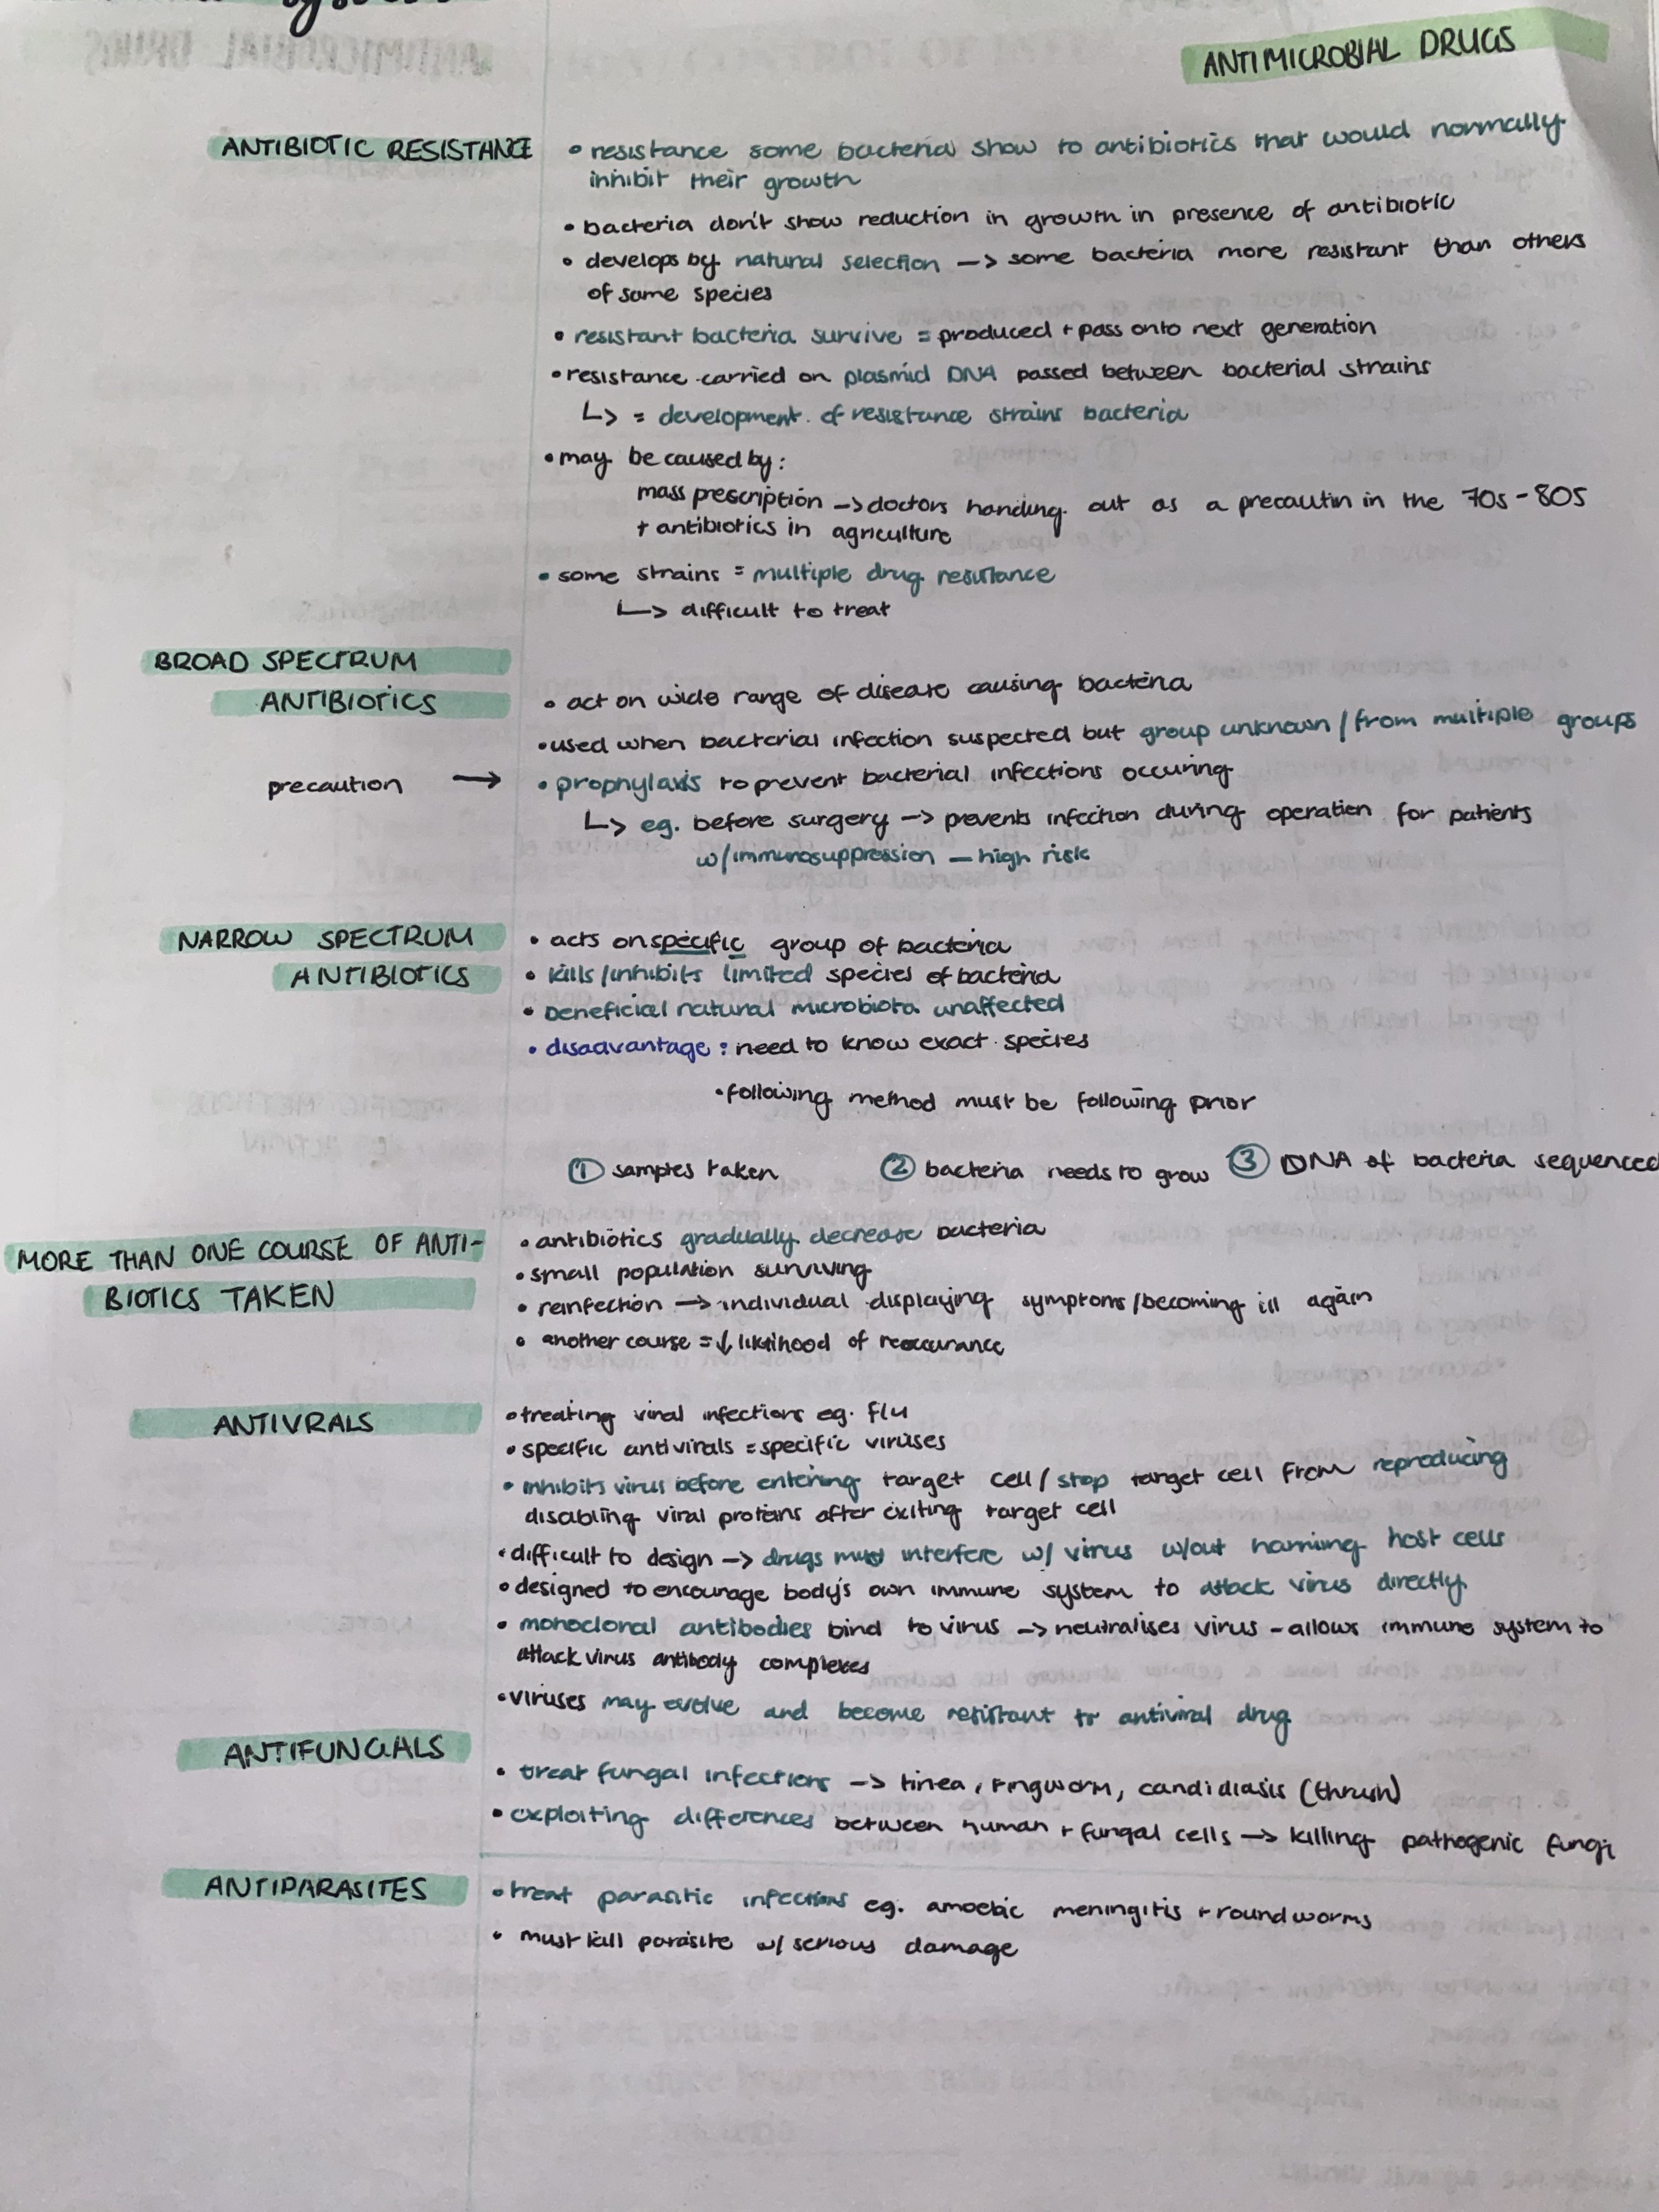 ANTIMICROBIAL DRUGS
ANTIBIOTIC RESISTANCE
• resistance some bacteria show to antibiotics that would normally
inhibit their growth
• bacteria don't show reduction in growth in presence of antibiotic
• develops by natural selection —> some bacteria more resistant than others
of same species
• resistant bacteria survive = produced + pass onto next generation
• resistance carried on plasmid DNA passed between bacterial strains
↳ = development of resistance strains bacteria
• may be caused by:
mass prescription —> doctors handing out as a precautin in the 70s - 80s
+ antibiotics in agriculture
• some strains = multiple drug resistance
↳ difficult to treat
BROAD SPECTRUM
ANTIBIOTICS
• act on wide range of disease causing bacteria
• used when bacterial infection suspected but group unknown / from multiple groups
precaution →
• prophylaxis to prevent bacterial infections occuring
↳ eg. before surgery —> prevents infection during operation for patients
w/ immunosuppression — high risk
NARROW SPECTRUM
ANTIBIOTICS
• acts on specific group of bacteria
• kills/inhibits limited species of bacteria
• beneficial natural microbiota unaffected
• disadvantage : need to know exact species
• following method must be following prior
① samples taken ② bacteria needs to grow ③ DNA of bacteria sequenced
MORE THAN ONE COURSE OF ANTI-
BIOTICS TAKEN
• antibiotics gradually decrease bacteria
• small population surviving
• reinfection —> individual displaying symptoms/becoming ill again
• another course = ↓ likelihood of reoccurance
ANTIVRALS
• treating viral infections eg. flu
• specific antivirals = specific viruses
• inhibits virus before entering target cell / stop target cell from reproducing
disabling viral proteins after exiting target cell
• difficult to design —> drugs must interfere w/ virus w/out harming host cells
• designed to encourage body's own immune system to attack virus directly
• monoclonal antibodies bind to virus —> neutralises virus - allows immune system to
attack virus antibody complexes
• viruses may evolve and become resistant to antiviral drug
ANTIFUNGALS
• treat fungal infections —> tinea, ringworm, candidiasis (thrush)
• exploiting differences between human + fungal cells —> killing pathogenic fungi
ANTIPARASITES
• treat parasitic infections eg. amoebic meningitis + roundworms
• must kill parasite w/ serious damage